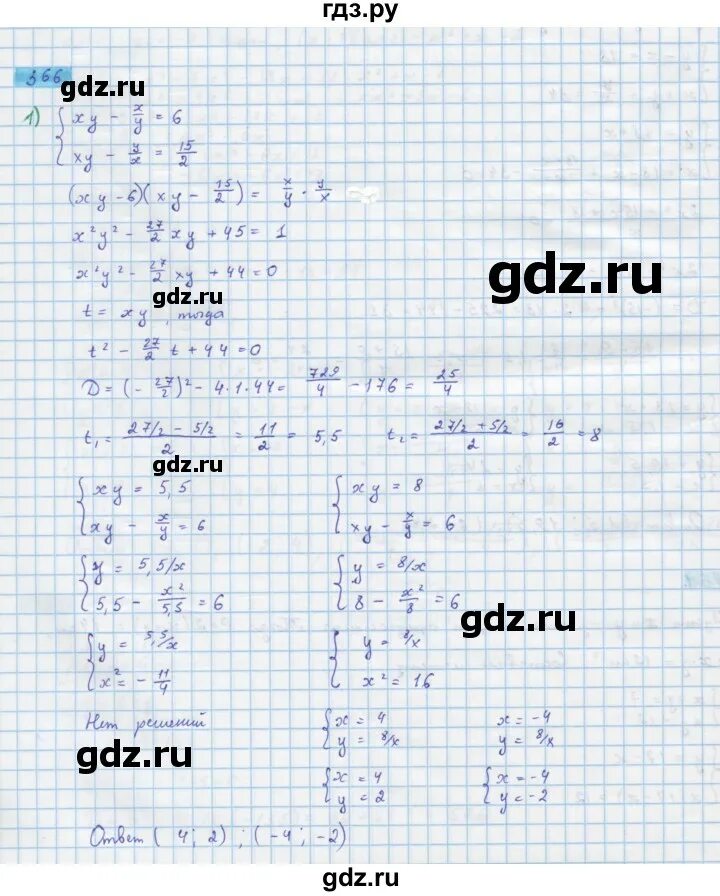 гдз.ру
366
gdz.ru
1) { xy - x/y = 6
xy - y/x = 15/2
(xy - 6)(xy - 15/2) = x/y · y/x
x²y² - 27/2 xy + 45 = 1
x²y² - 27/2 xy + 44 = 0
gdz.ru
gdz.ru
t = xy, тогда
t² - 27/2 t + 44 = 0
D = (- 27/2)² - 4·1·44 = 729/4 - 176 = 25/4
t₁ = (27/2 - 5/2)/2 = 11/2 = 5,5 t₂ = (27/2 + 5/2)/2 = 16/2 = 8
gdz.ru
{ xy = 5,5 { xy = 8
xy - x/y = 6 xy - x/y = 6
{ y = 5,5/x { y = 8/x
5,5 - x²/5,5 = 6 8 - x²/8 = 6
gdz.ru
{ y = 5,5/x { y = 8/x
x² = - 11/4 x² = 16
Нет решений { x = 4 x = -4
y = 8/x y = 8/x
gdz.ru
{ x = 4 { x = -4
y = 2 y = -2
gdz.ru
Ответ ( 4; 2) ; (-4; -2)
gdz.ru